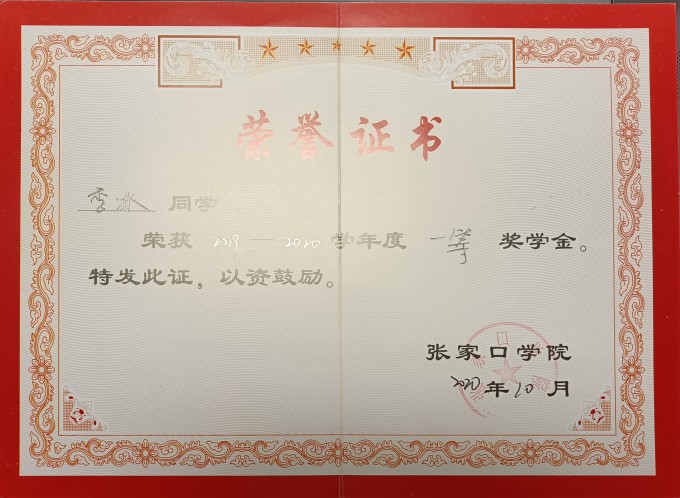 荣誉证书
李冰 同学
荣获 2019—2020 学年度 一等 奖学金。
特发此证，以资鼓励。
张家口学院
2020年10月